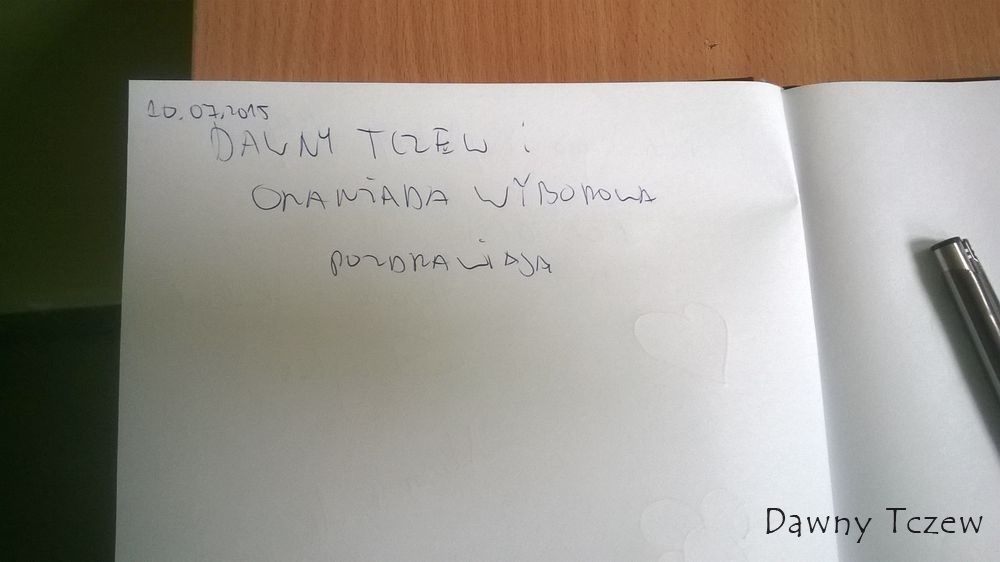 10.07.2015
DAWNY TCZEW i
ORANŻADA WYBOROWA
POZDRAWIAJĄ
Dawny Tczew